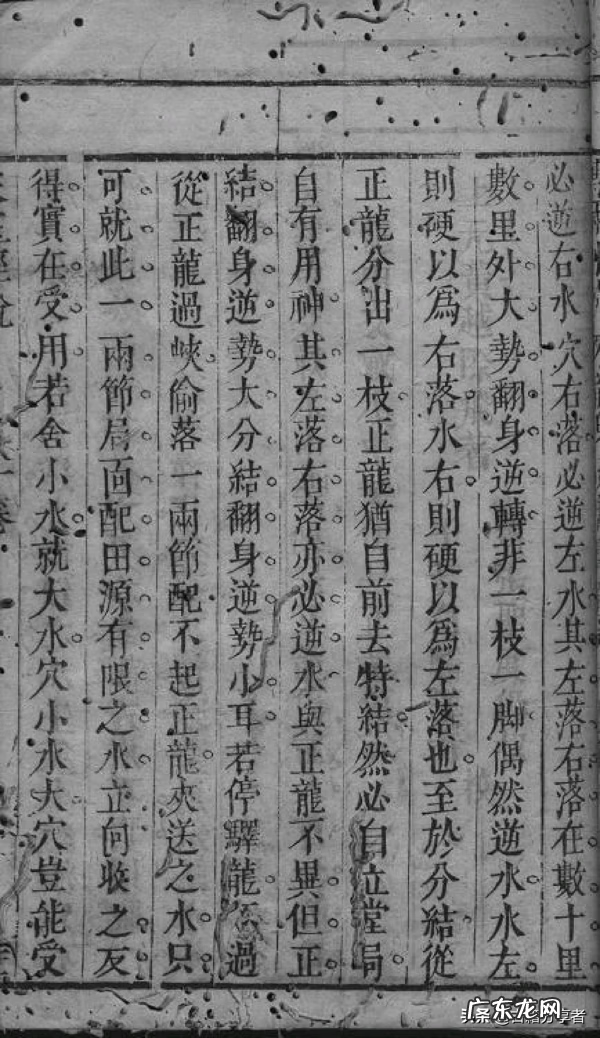 必逆右水穴右落必逆左水其左落右落在數十里
數里外大勢翻身逆轉非一枝一脚偶然逆水水左
則硬以為右落水右則硬以為左落也至於分結從
正龍分出一枝正龍猶自前去特結然必自立堂局
自有用神其左落右落亦必逆水與正龍不異但正
結翻身逆勢大分結翻身逆勢小耳若停驛龍過
從正龍過峽偷落一兩節配不起正龍夾送之水只
可就此一兩節局面配田源有限之水立向收之反
得實在受用若舍小水就大水穴小水大穴豈能受
广东龙网